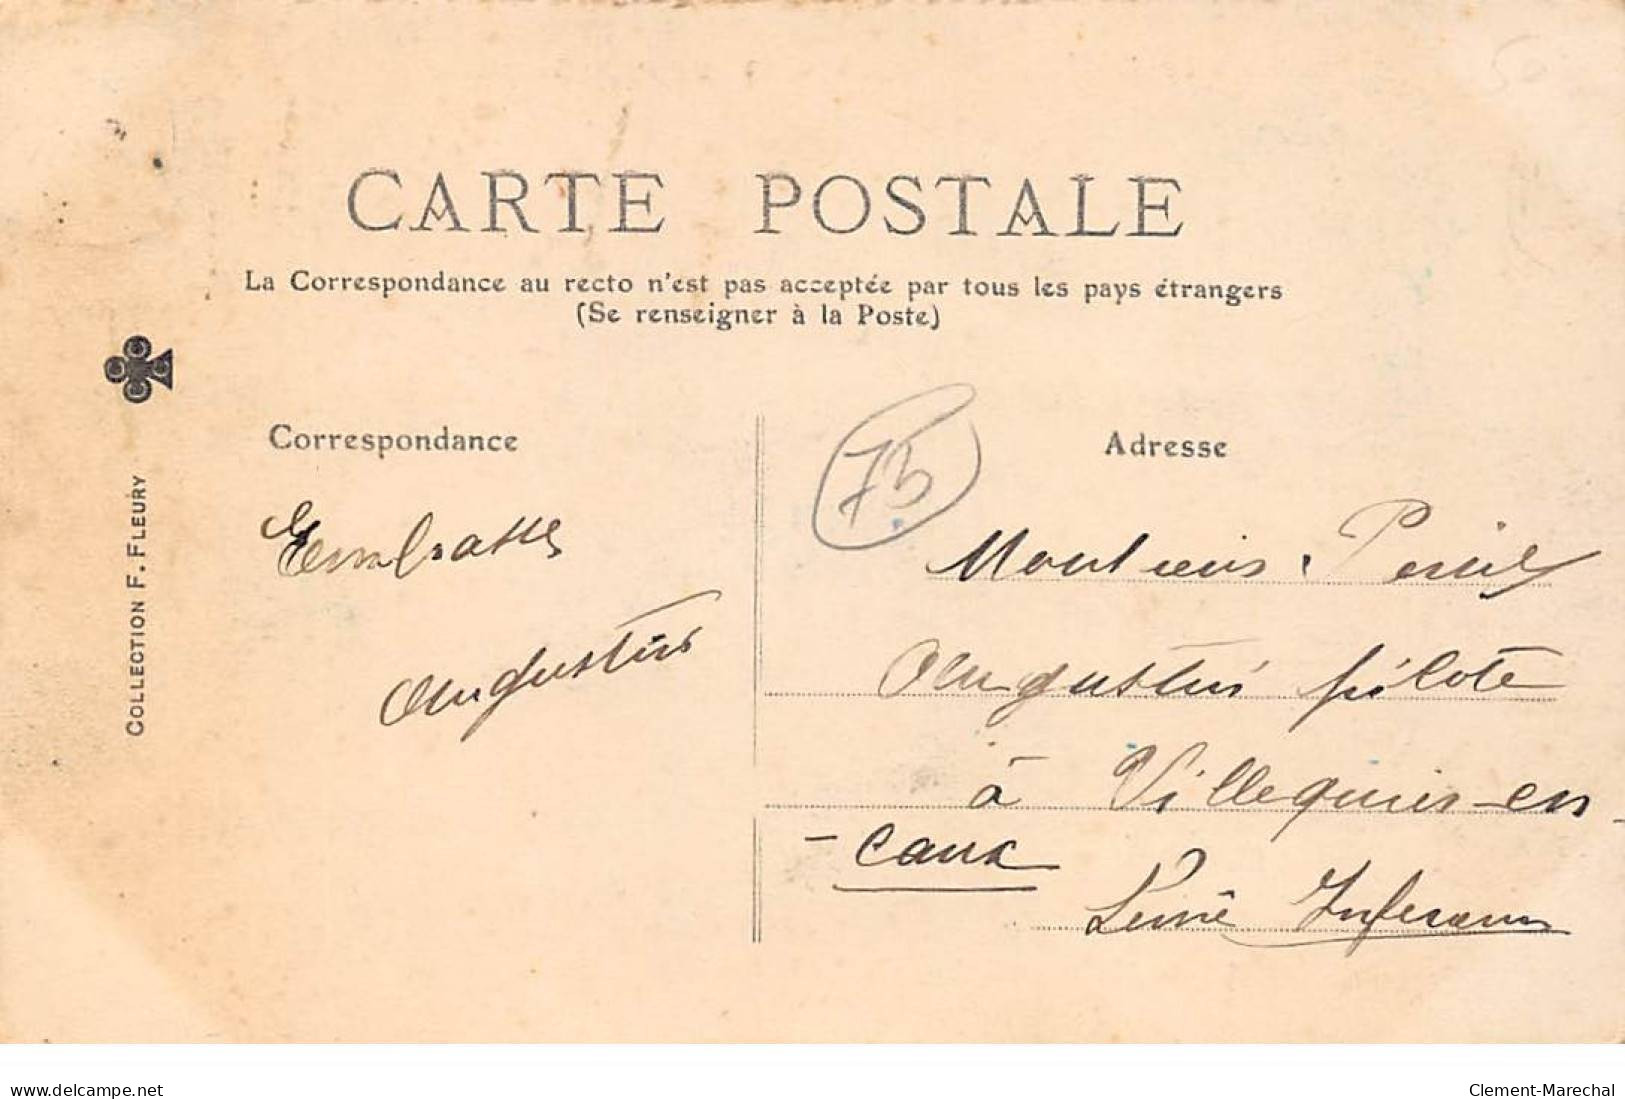 CARTE POSTALE
La Correspondance au recto n'est pas acceptée par tous les pays étrangers
(Se renseigner à la Poste)
COLLECTION F. FLEURY
Correspondance
Augustin
75
Adresse
Monsieur
Augustin pilote
à Villequier-en-
-Caux
Seine Inférieure
50
www.delcampe.net
Clement-Marechal